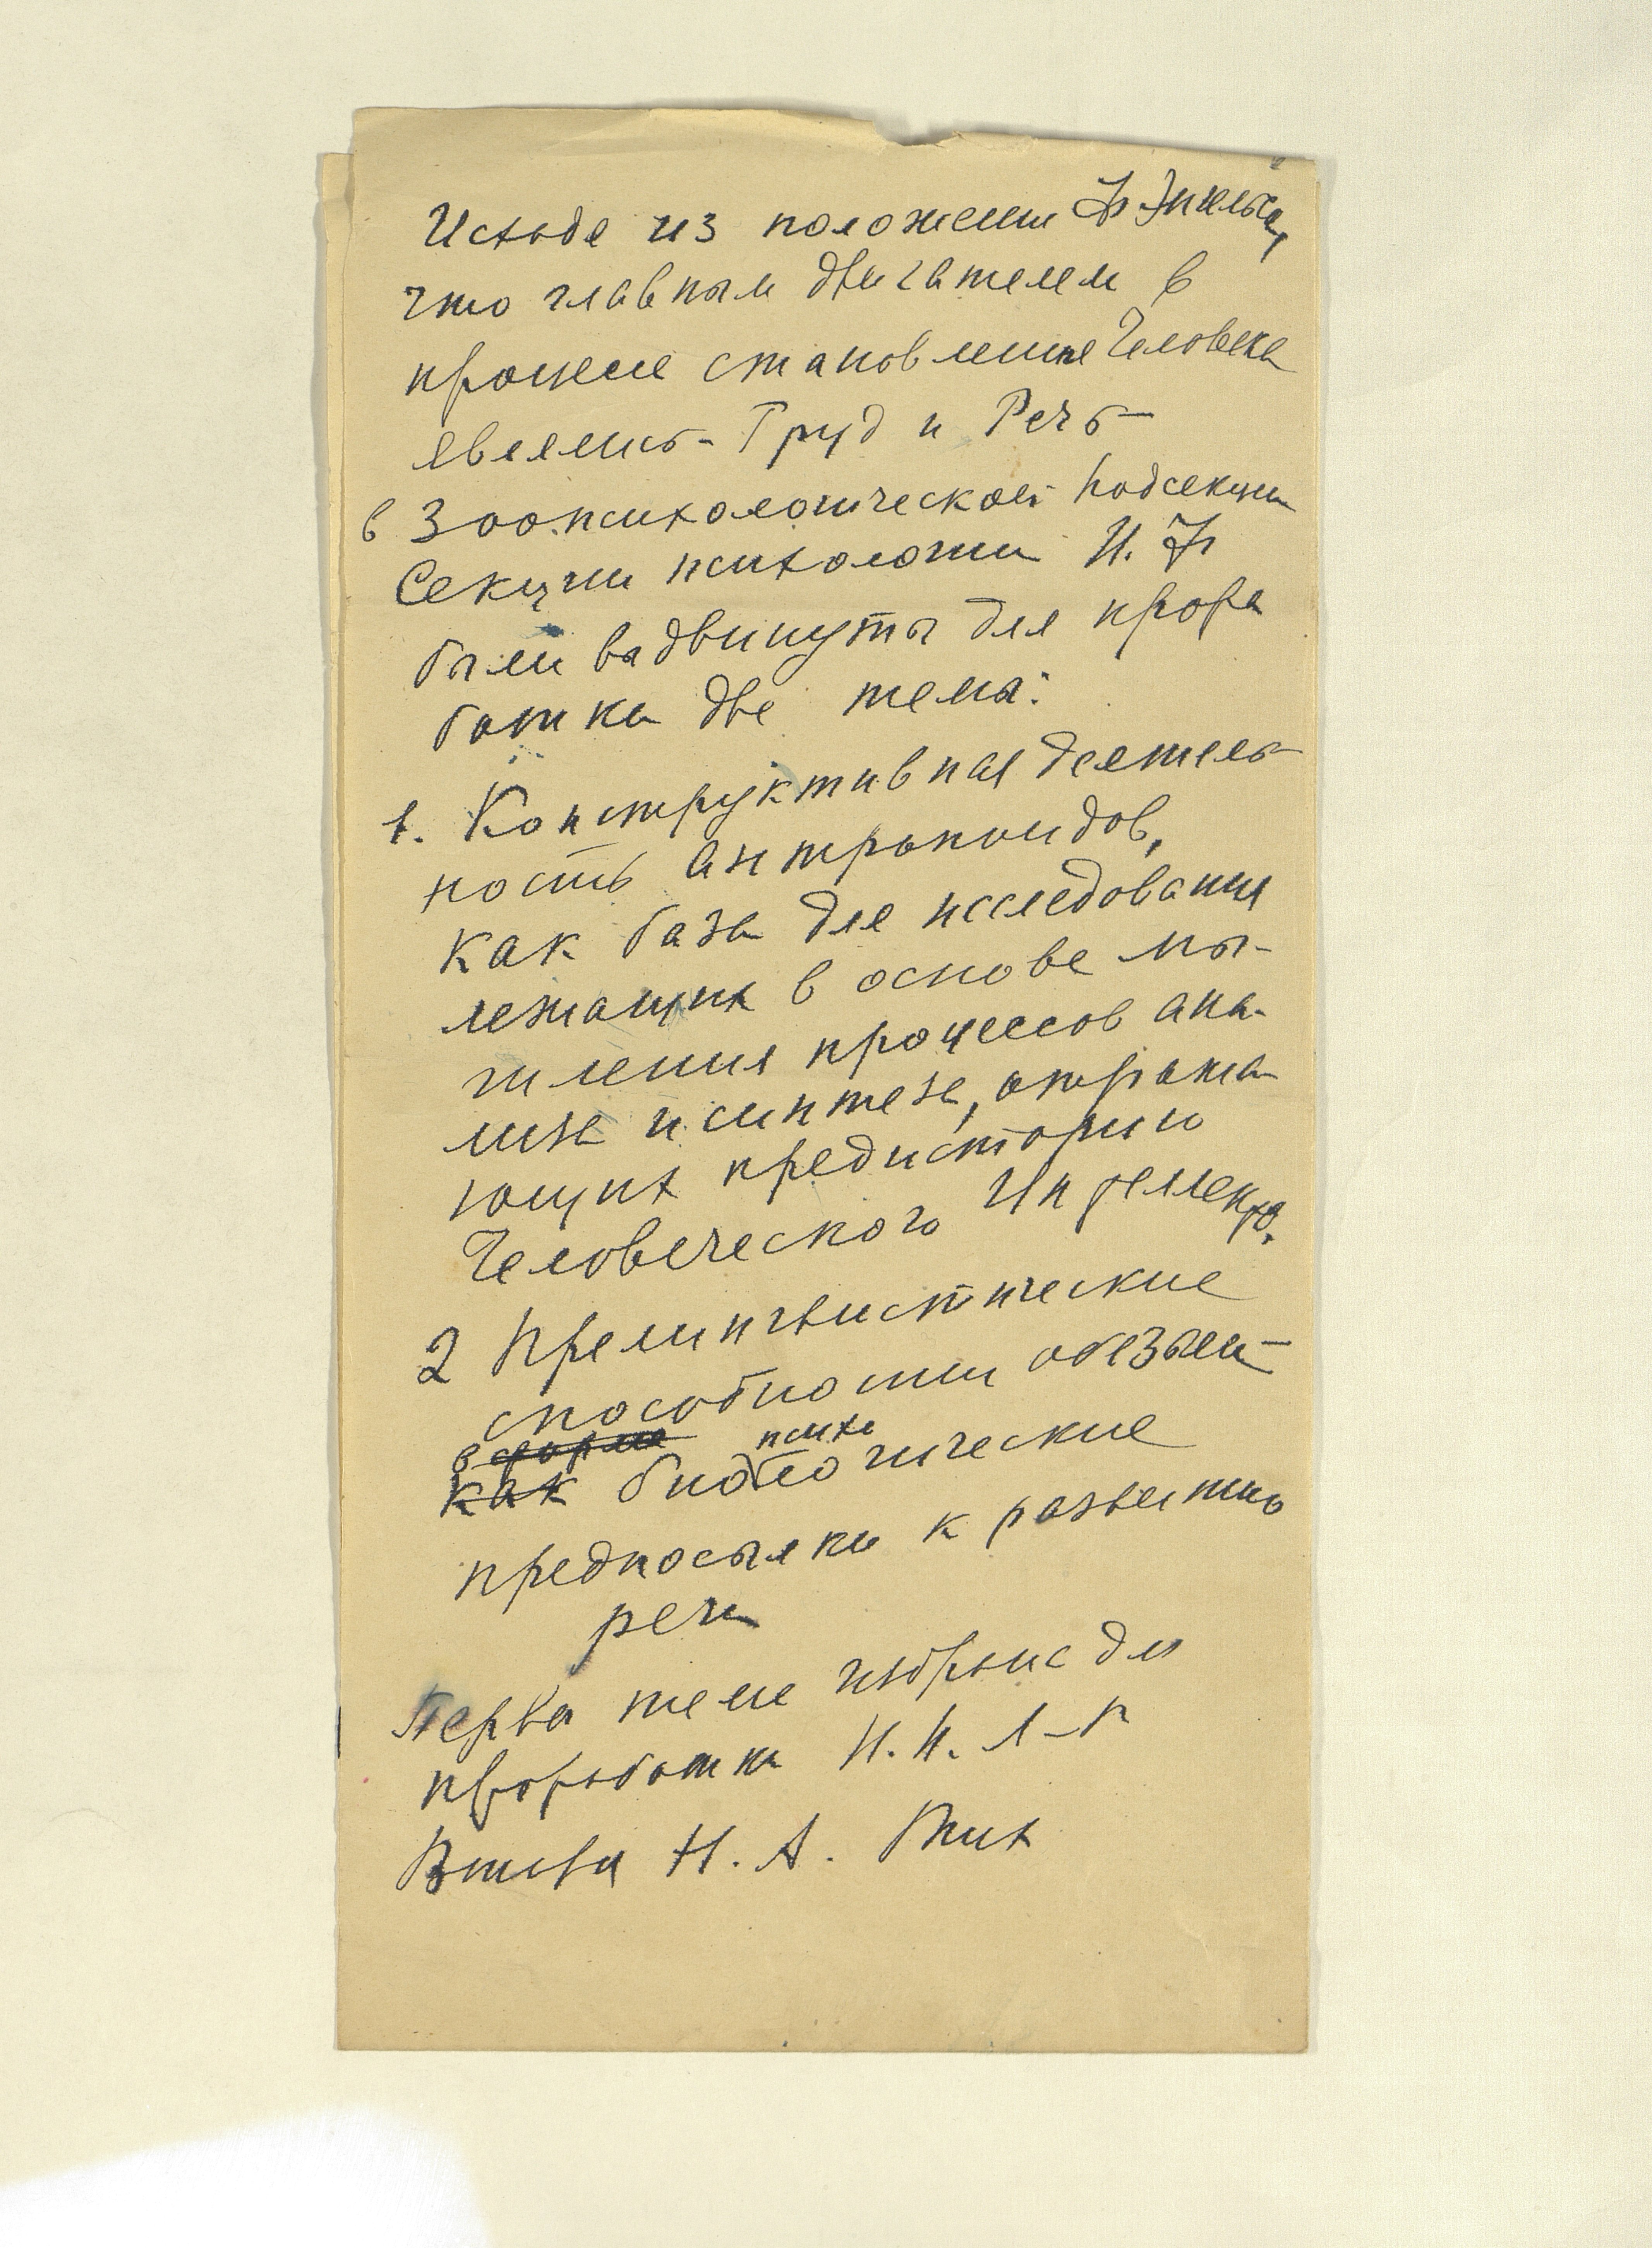 Исходя из положении Ф Энгельса,
что главным двигателем в
процессе становления Человека
явились - Труд и Речь -
в Зоопсихологической Подсекции
Секции психологии И. Ф
были выдвинуты для прора
ботки две темы:
1. Конструктивная деятель-
ность антропоидов,
как база для исследования
лежащих в основе мы-
шления процессов ана-
лиза и синтеза, отража-
ющих предисторию
Человеческого Интеллекта.
2 Прелингвистические
способности обезьян -
в форме психо
как биологические
предпосылки к развитию
речи
Перва тема избрана для
проработки Н. Н. Л-К
Вторая Н. А. Тих